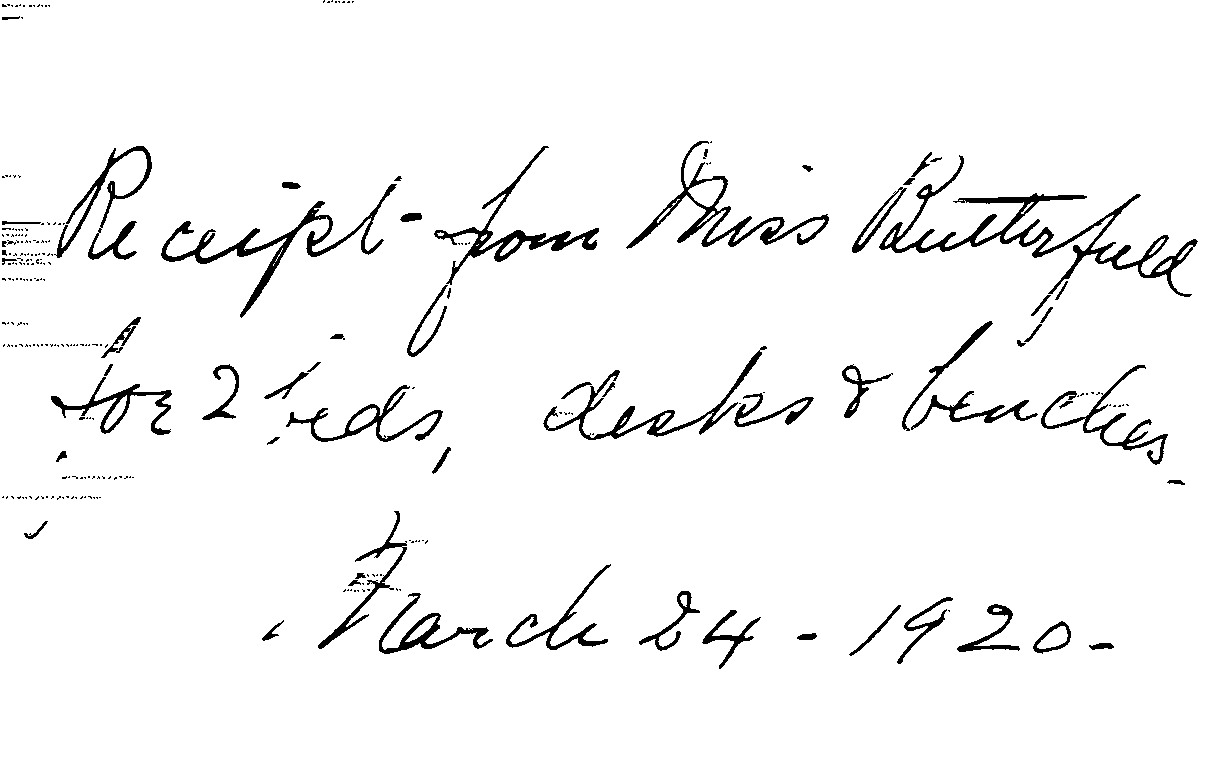 Receipt from Miss Butterfield
for 2 beds, desks & benches -
March 24 - 1920 -